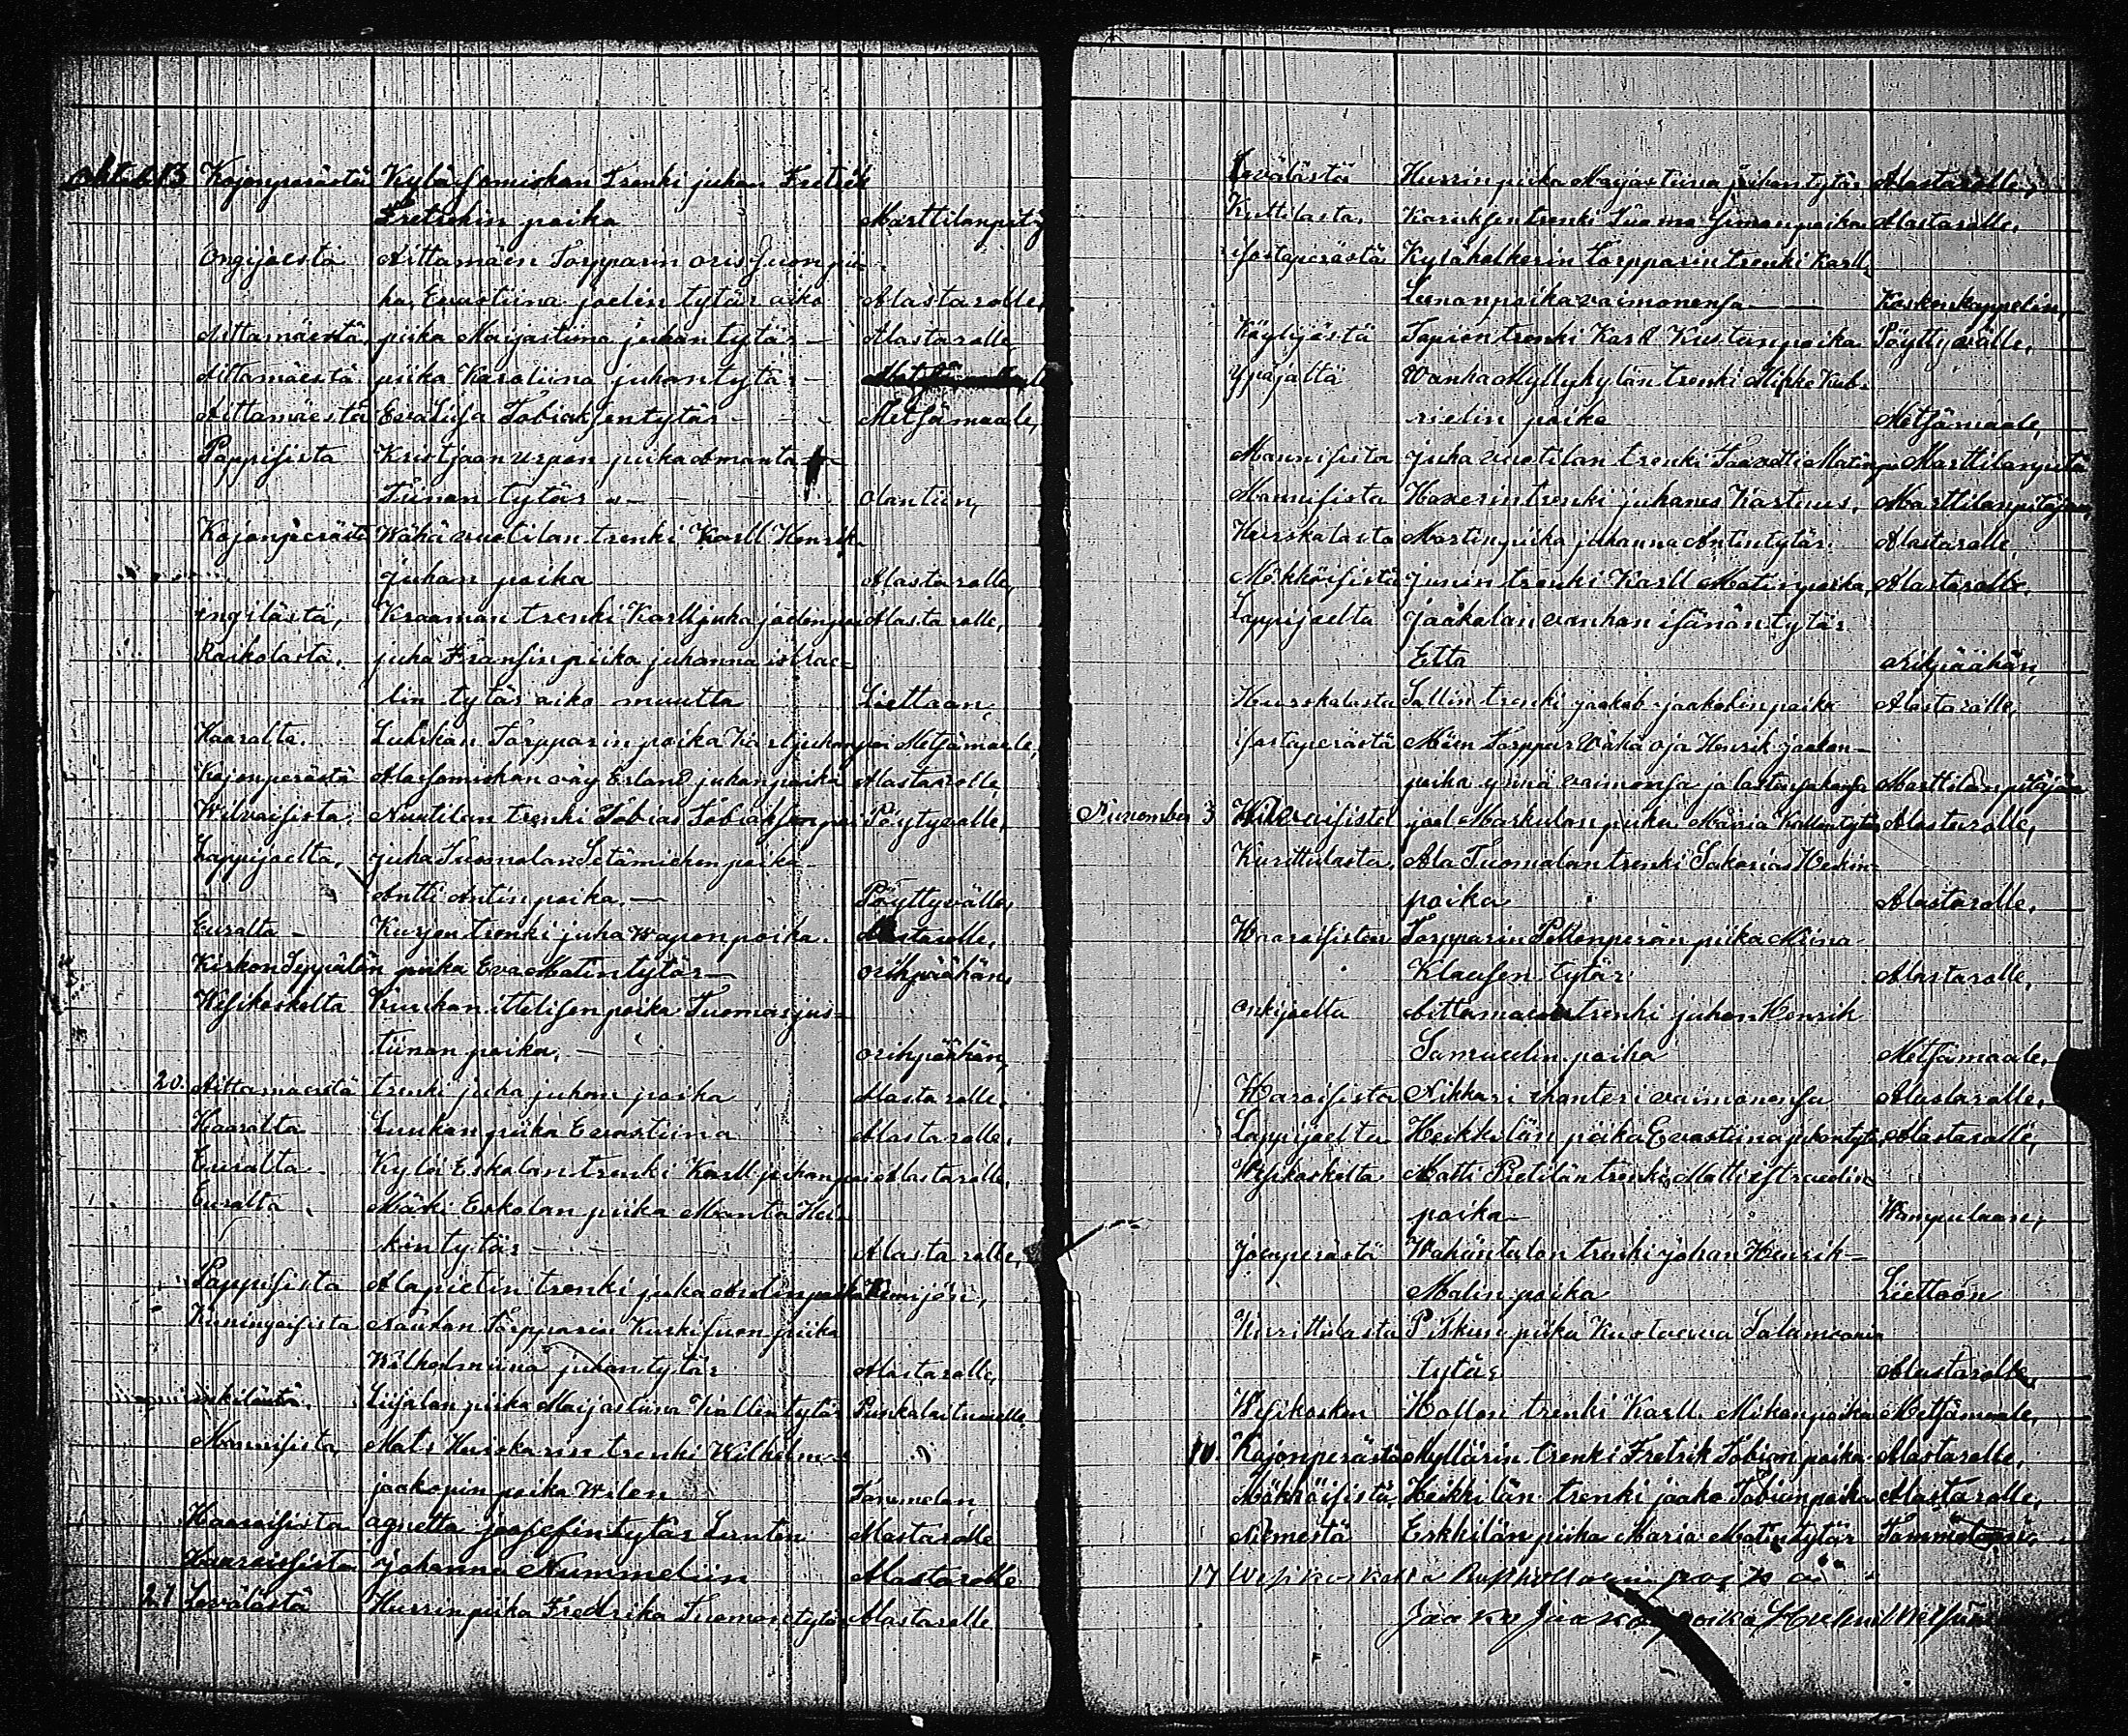 Kojonperästä Kyläsomiskan Trenki juhan Fretrik
Fretrekin poika Marttilanpitä
Ongijoesta Aittamäen Torpparin
Evastiina joelin tytär aiko Alastarolle,
Aittamäestä, piika Maijastiina juhan tytär — Alastarolle
Aittamäestä piika Karoliina juhan tytär —
Aittamäestä Eevaliisa Tobiaksentytär - Metsämaale,
Pappisista Kristjaanurpon piika Amanta
Tiinan tytär — Oantiin,
Kojonperästä Wähävuotilan trenki Karll Henrik
juhan poika Alastarolle,
ingilästä, Kraaman trenki Karll juha joelinpoi Alastarolle,
Raikolasta. juha Fransin piika juhanna israe-
lin tytär aiko muutta Liettoon,
Haaralta. Torpparin poika Karl juhanpoi Metsämaale,
Kojonperästä Alasomiskan väy Erland juhanpoika Alastarolle
Wilvaisista. Nuutilan trenki Tobias Tobiaksenpoi Pöytyvälle,
Lappijoelta, juha Tuomolan Setämiehen poika
Antti Antin poika. — Pöyttyvälle,
Euralta — Kurjen trenki juha Waponpoika. Alastarolle,
Kirkon Seppälän piika Eva Matintytär — orihpäähän,
Wesikoskelta Kuukan ittelisen poika Tuomas jus-
tiinan poika, orihpäähän,
20. Aittamäestä trenki juha juhan poika Alastarolle,
Haaralta Luukan piika Evastiina Alastarolle,
Euralta Kylä Eskolan trenki Karll juhanpoi Alastarolle,
Euralta Mäki Eskolan piika Manta Hei-
kin tytär Alastarolle,
Pappisista Alapietin trenki juha
Kuningoisista Nautan Torpparin Kuskisuon piika
Wilhelmiina juhan tytär Alastarolle,
inkilästä. Liisalan piika Maijastiina Kallentytär Punkalaitumelle
Mannisista, Mats Huiskarin trenki Wilhelm
jaakopin poika Wilen Tammelan
Haaroisista agnetta joosefintytär Lenten Alastarolle
Haaroissista Johanna Nummeliin Alastarolle
27 Levälästä Hurrinpiika Fredrika Tuomontytär Alastarolle
Levälästä Hurrin piika Maijastiina juhan tytär Alastarolle,
Kuttilasta. Karuksen trenki Tuomo Simonpoika Alastarolle,
isostaperästä Kylähelkerin Torpparin trenki Karll
Leenanpoika vaimonensa — Koskenkappeliin,
Köyliöstä Tapion trenki Karl Kustanpoika Pöyttyvälle,
Ypäjältä Wanha Myllykylän trenki Mikke Kab-
rielin poika Metsämaale,
Mannisista juha vuotilan trenki Taavetti Matinpoi Marttilanpitä
Mannisista Haverin trenki juhanes Kartuus, Marttilanpitäjään,
Hurskalasta Martin piika juhanna Antintytär. Alastarolle,
Mökköisistä junin trenki Karll Matinpoika, Alastarolle.
Lappijoelta jaakolan vanhan isänän tytär
Etta orihpäähän,
Hurskalasta Sallin trenki jaakob jaakobinpoika Alastarolle,
isostaperästä Mäen Torppar Wähä oja Henrik jaakon-
poika ynnä vaimonsa ja lastensakansa Marttilanpitäjään
November 3 Wilvaisista joel Markulan piika Maria Kallentytär Alastarolle,
Kurittulasta, Ala Tuomolan trenki Sakarias Heikin-
poika Alastarolle,
Torpparin Peltenperän piika Miina
Klausen tytär Alastarolle,
Onkijoelta Aittamäen trenki juhan Henrik
Samuelin poika Metsämaale,
Haroisista Nikkari vaimonensa Alastarolle,
Lappijoelta Heikkilän piika Evastiina juhantytär Alastarolle,
Wesikoskelta Matti Pietilän trenki Matti israelin
poika Wampulaan,
Jomperästä Wahäntalon trenki johan Henrik —
Matin poika Liettoon
Kurittulasta Piskun piika Kustaava Salamonin
tytär Alastarolle
Wesikosken Hollon trenki Karll Mikonpoika Metsämaale,
10. Kojonperästä Myllärin trenki Fretrik Tobiam poika Alastarolle,
Mökköisistä, Heikkilän trenki jaako Tobianpoika Alastarolle,
Niemestä Erkkilän piika Maria Matintytär
17
Jaako poika